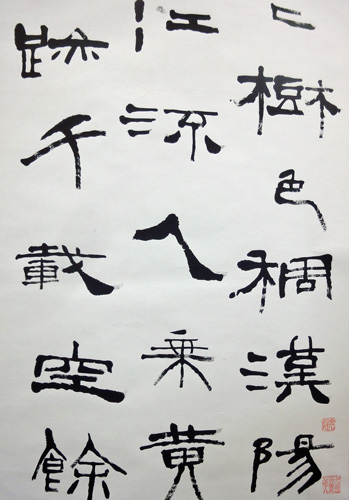 樹色稠漢陽
江流人乘黄
跡千載空餘